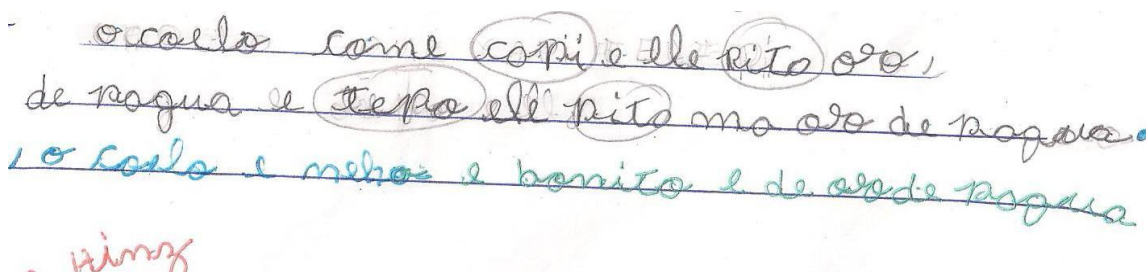 o coelo come copi e ele pito oro,
de pagua e tepo ele pito mo oro de pagua.
, o coelo e melhor e bonito e de oro de pagua